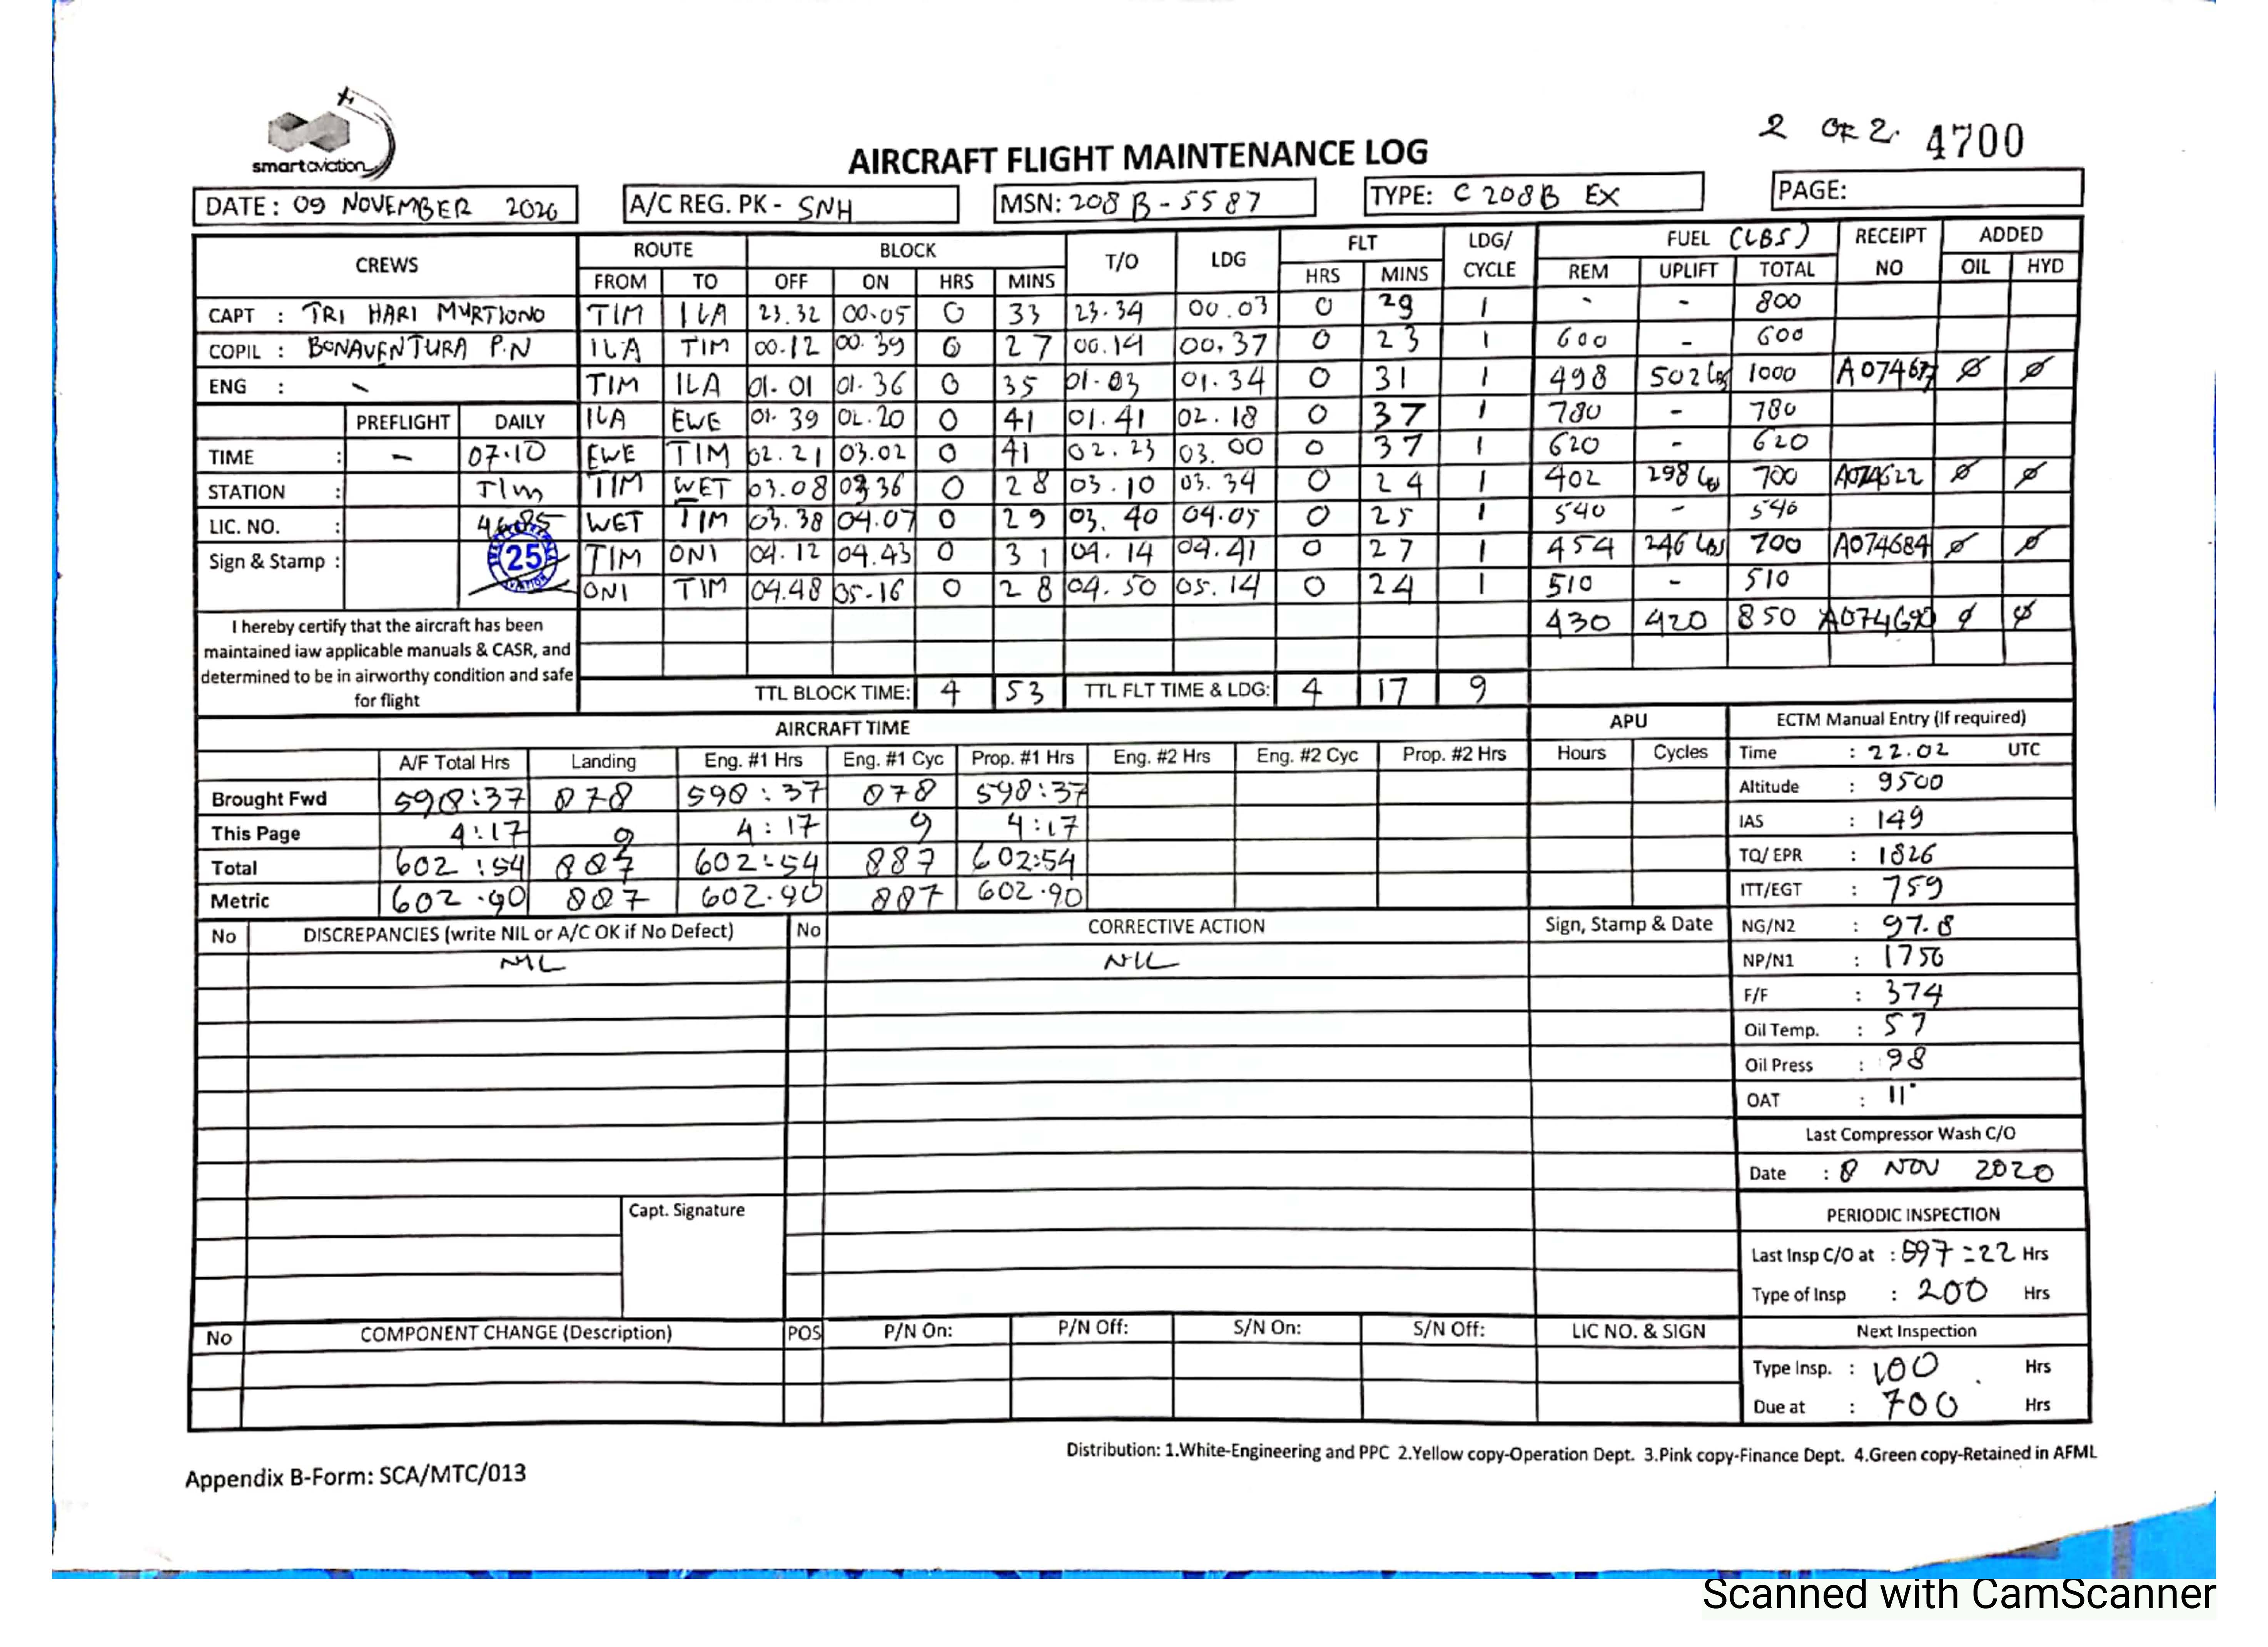 smartaviation
2 OF 2. 4700
AIRCRAFT FLIGHT MAINTENANCE LOG
DATE: 09 NOVEMBER 2020 A/C REG. PK - SNH MSN: 208B-5587 TYPE: C 208B EX PAGE:
CREWS ROUTE BLOCK T/O LDG FLT LDG/ CYCLE FUEL (LBS) RECEIPT NO ADDED
FROM TO OFF ON HRS MINS HRS MINS REM UPLIFT TOTAL OIL HYD
CAPT : TRI HARI MURTIONO TIM ILA 23.32 00.05 0 33 23.34 00.03 0 29 1 - - 800
COPIL : BONAVENTURA P.N ILA TIM 00.12 00.39 0 27 00.14 00.37 0 23 1 600 - 600
ENG : - TIM ILA 01.01 01.36 0 35 01.03 01.34 0 31 1 498 502 Lbs 1000 Ø Ø
PREFLIGHT DAILY ILA EWE 01.39 02.20 0 41 01.41 02.18 0 37 1 780 - 780
TIME : - 07.10 EWE TIM 02.21 03.02 0 41 02.23 03.00 0 37 1 620 - 620
STATION : TIM TIM WET 03.08 03.36 0 28 03.10 03.34 0 24 1 402 298 700 Ø Ø
LIC. NO. : WET TIM 03.38 04.07 0 29 03.40 04.05 0 25 1 540 - 540
Sign & Stamp : 25 TIM ONI 04.12 04.43 0 31 04.14 04.41 0 27 1 454 246 Lbs 700 A074684 Ø Ø
ONI TIM 04.48 05.16 0 28 04.50 05.14 0 24 1 510 - 510
430 420 850 Ø Ø
I hereby certify that the aircraft has been
maintained iaw applicable manuals & CASR, and
determined to be in airworthy condition and safe
for flight
TTL BLOCK TIME: 4 53 TTL FLT TIME & LDG: 4 17 9
AIRCRAFT TIME APU ECTM Manual Entry (If required)
A/F Total Hrs Landing Eng. #1 Hrs Eng. #1 Cyc Prop. #1 Hrs Eng. #2 Hrs Eng. #2 Cyc Prop. #2 Hrs Hours Cycles Time : 22.02 UTC
Brought Fwd 598:37 878 598:37 878 598:37 Altitude : 9500
This Page 4:17 9 4:17 9 4:17 IAS : 149
Total 602:54 887 602:54 887 602:54 TQ/ EPR : 1826
Metric 602.90 887 602.90 887 602.90 ITT/EGT : 759
No DISCREPANCIES (write NIL or A/C OK if No Defect) No CORRECTIVE ACTION Sign, Stamp & Date NG/N2 : 97.8
NIL NIL NP/N1 : 1750
F/F : 374
Oil Temp. : 57
Oil Press : 98
OAT : 11°
Last Compressor Wash C/O
Date : 8 NOV 2020
Capt. Signature
PERIODIC INSPECTION
Last Insp C/O at : 597:22 Hrs
Type of Insp : 200 Hrs
No COMPONENT CHANGE (Description) POS P/N On: P/N Off: S/N On: S/N Off: LIC NO. & SIGN Next Inspection
Type Insp. : 100 Hrs
Due at : 700 Hrs
Distribution: 1.White-Engineering and PPC 2.Yellow copy-Operation Dept. 3.Pink copy-Finance Dept. 4.Green copy-Retained in AFML
Appendix B-Form: SCA/MTC/013
Scanned with CamScanner